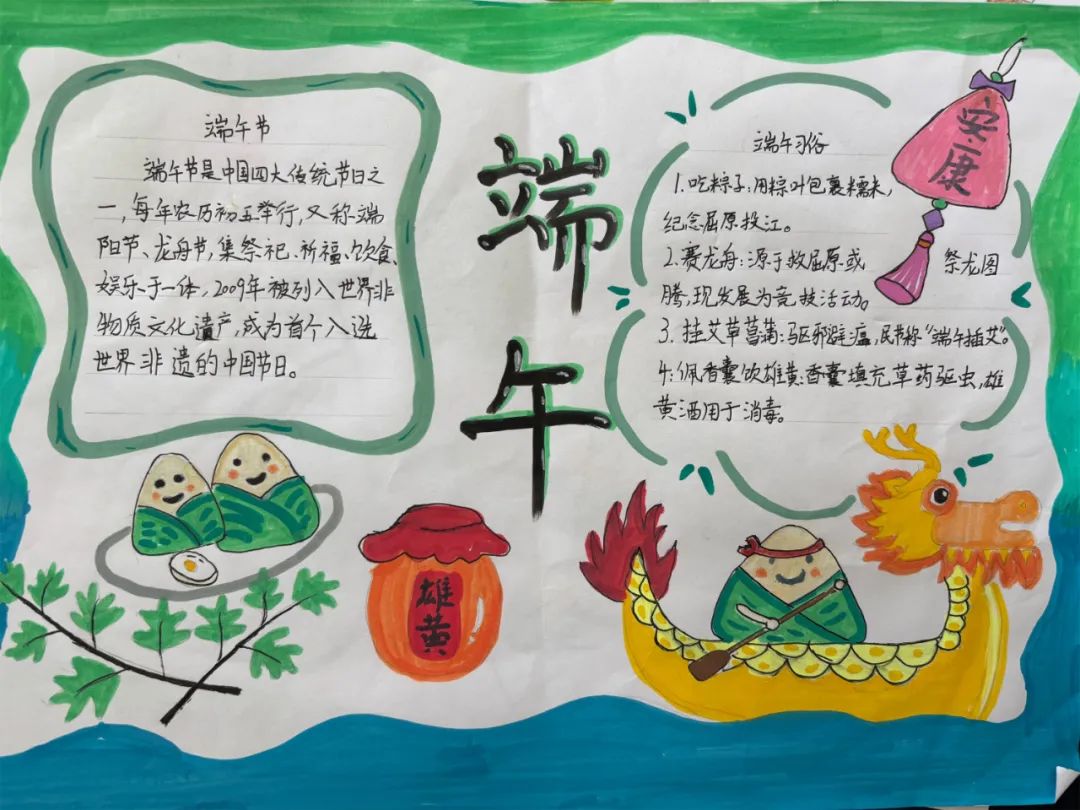 端午节
端午节是中国四大传统节日之
一,每年农历初五举行,又称端
阳节、龙舟节,集祭祀、祈福、饮食、
娱乐于一体,2009年被列入世界非
物质文化遗产,成为首个入选
世界非遗的中国节日。
端
午
端午习俗
1.吃粽子:用粽叶包裹糯米,
纪念屈原投江。
2.赛龙舟:源于救屈原或 祭龙图
腾,现发展为竞技活动。
3.挂艾草菖蒲:驱邪避瘟,民节称“端午插艾”。
4:佩香囊饮雄黄:香囊填充草药驱虫,雄
黄酒用于消毒。
安
康
雄
黄